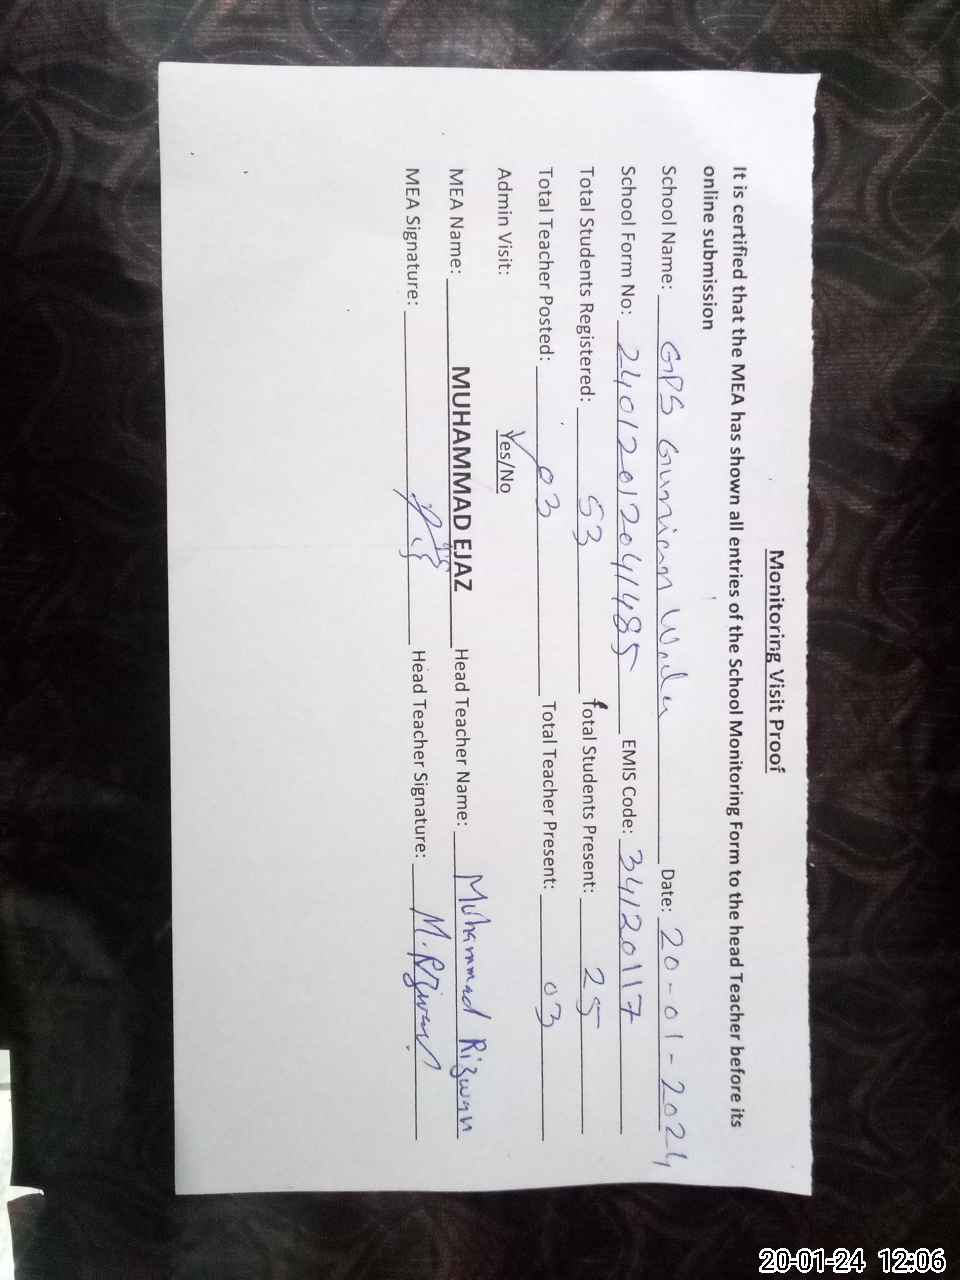 Monitoring Visit Proof
It is certified that the MEA has shown all entries of the School Monitoring Form to the head Teacher before its
online submission
School Name: GPS Gumian Wala Date: 20-01-2024
School Form No: 24012012041485 EMIS Code: 34120117
Total Students Registered: 53 Total Students Present: 25
Total Teacher Posted: 03 Total Teacher Present: 03
Admin Visit: Yes/No
MEA Name: MUHAMMAD EJAZ Head Teacher Name: Muhammad Rizwan
MEA Signature: Head Teacher Signature: M.Rizwan
20-01-24 12:06